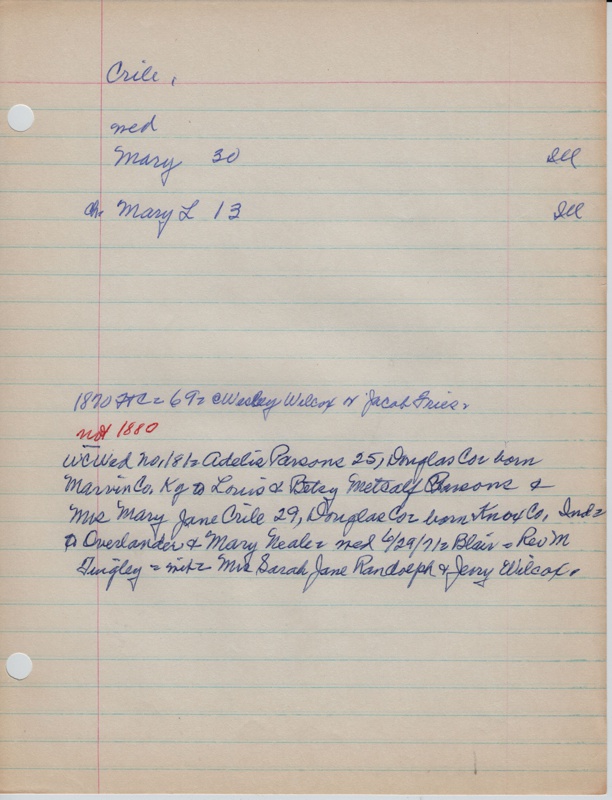 Crile,
wed
Mary 30 Ill
ch. Mary L 13 Ill
1870 FtC = 69 = Wesley Wilcox & Jacob Fries.
not 1880
WCWed No. 181 = Adelia Parsons 25, Douglas Co = born
Marvin Co. Ky to Louis & Betsy Metcalf Parsons &
Mrs Mary Jane Crile 29, Douglas Co = born Knox Co, Ind =
to Overlander & Mary Neale = wed 6/29/71 = Blair = Rev M
Tingley = wit = Mrs Sarah Jane Randolph & Jerry Wilcox.